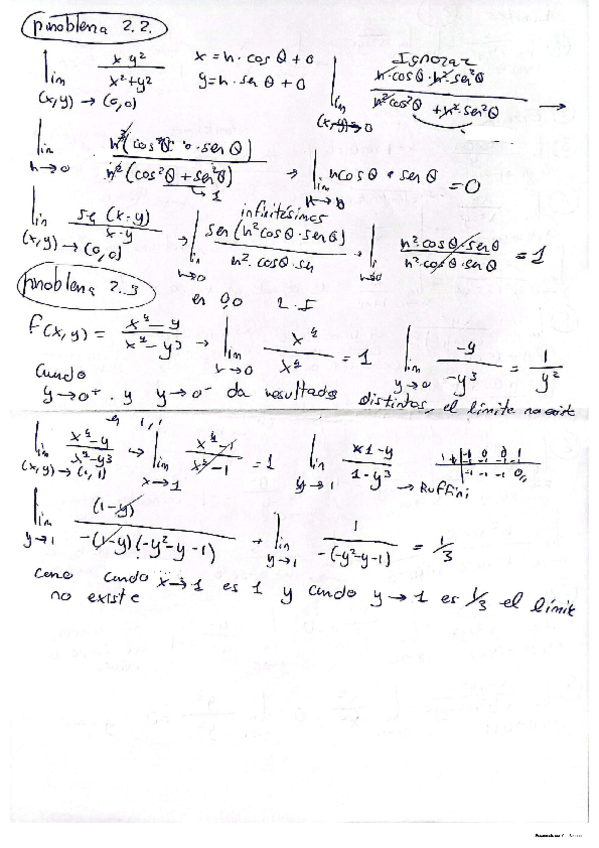 problema 2.2.
lim (x,y)→(0,0) xy²/(x²+y²) x = h·cosθ+0 y = h·senθ+0 Ignorar lim (x,y)→0 h·cosθ·h²·sen²θ/(h²cos²θ+h²·sen²θ) →
lim h→0 h³(cosθ·senθ)/(h²(cos²θ+sen²θ)) 1 → lim h→0 hcosθ·senθ = 0
lim (x,y)→(0,0) sen(x·y)/(x·y) → infinitésimos lim h→0 sen(h²cosθ·senθ)/(h²·cosθ·sen) → lim h→0 h²cosθ·senθ/(h²·cosθ·senθ) = 1
problema 2.3
en 0,0
f(x,y) = (x⁴-y)/(x⁴-y³) → lim x→0 x⁴/x⁴ = 1 lim y→0 -y/-y³ = 1/y²
Cundo
y→0⁺ · y y→0⁻ da resultados distintos, el límite no existe
en 1,1
lim (x,y)→(1,1) (x⁴-y)/(x⁴-y³) → lim x→1 (x⁴-1)/(x⁴-1) = 1 lim y→1 (1-y)/(1-y³) → Ruffini
lim y→1 (1-y)/(-(1-y)(-y²-y-1)) → lim y→1 1/(-(-y²-y-1)) = 1/3
como cundo x→1 es 1 y cundo y→1 es 1/3 el límite
no existe